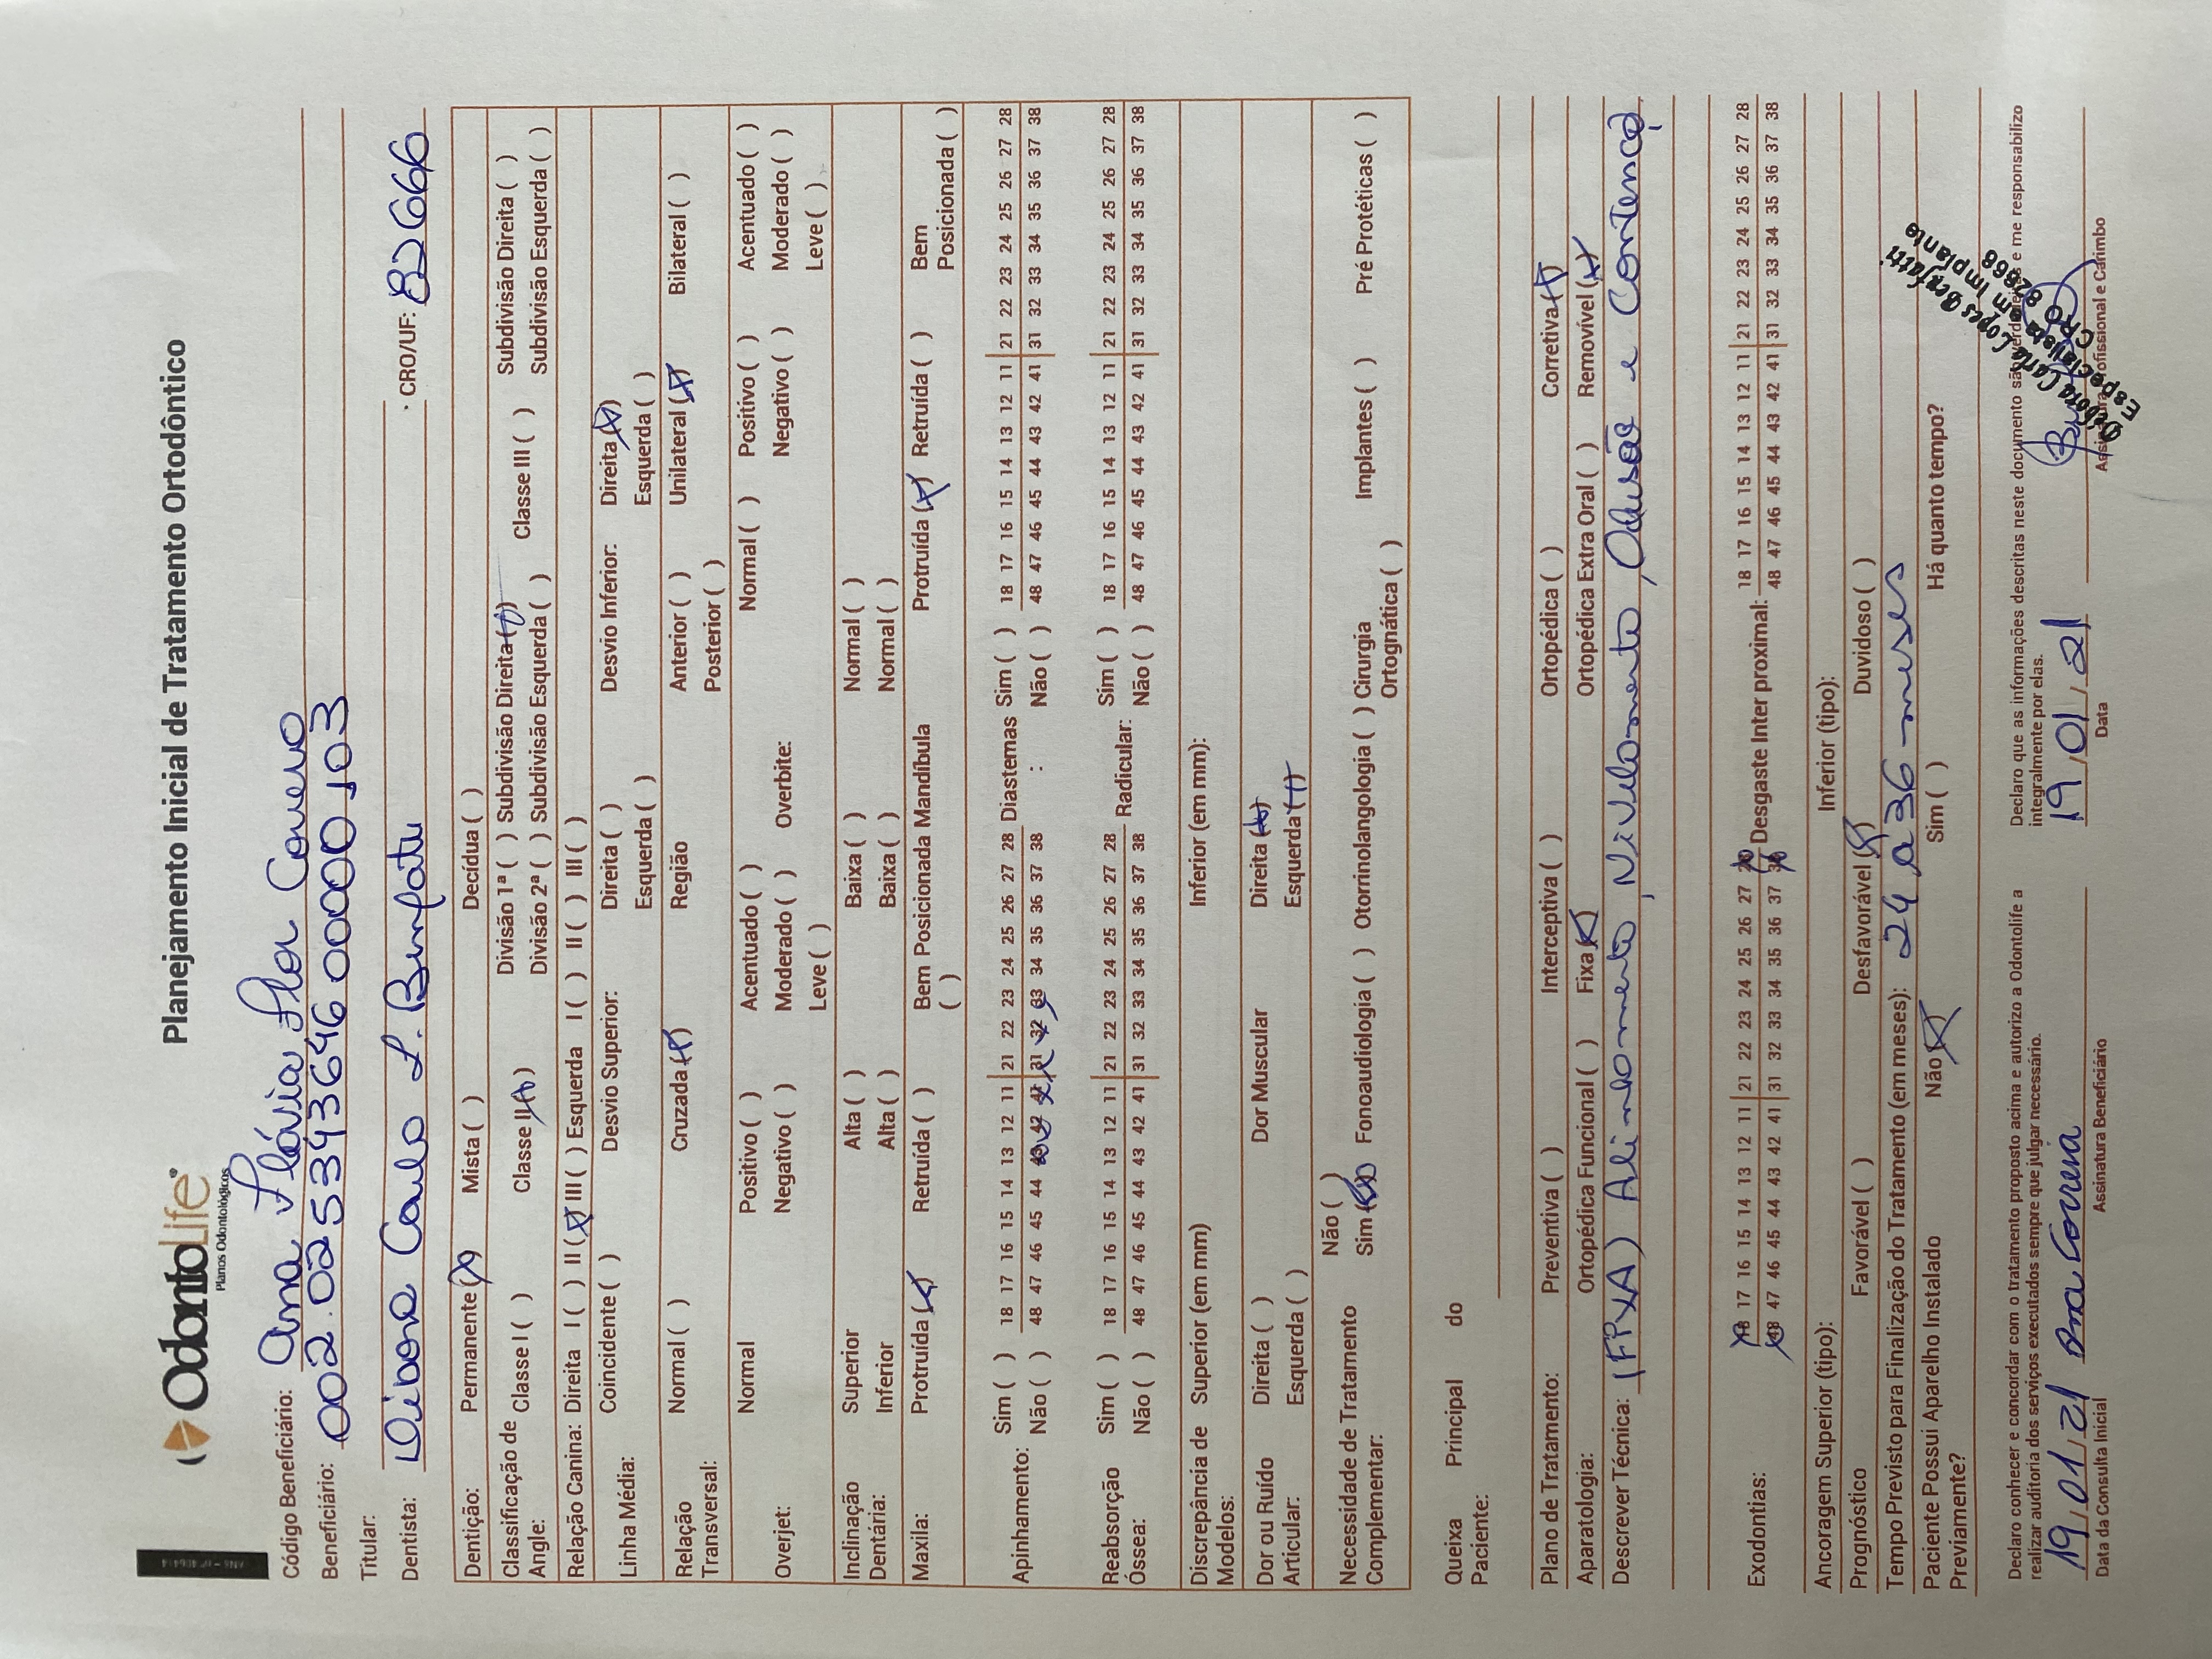 OdontoLife®
Planos Odontológicos
Planejamento Inicial de Tratamento Ortodôntico
Código Beneficiário: Ana Flávia Flor Correia
Beneficiário: 002.025343646 00000 103
Titular:
Dentista: Débora Carla L. Benfatti CRO/UF: 82666
Dentição: Permanente (X) Mista ( ) Decídua ( )
Classificação de Angle: Classe I ( ) Classe II (X) Divisão 1ª ( ) Subdivisão Direita (X) Classe III ( ) Subdivisão Direita ( )
Divisão 2ª ( ) Subdivisão Esquerda ( ) Subdivisão Esquerda ( )
Relação Canina: Direita I ( ) II (X) III ( ) Esquerda I ( ) II ( ) III ( )
Linha Média: Coincidente ( ) Desvio Superior: Direita ( ) Desvio Inferior: Direita (X)
Esquerda ( ) Esquerda ( )
Relação Transversal: Normal ( ) Cruzada (X) Região Anterior ( ) Unilateral (X) Bilateral ( )
Posterior ( )
Overjet: Normal Positivo ( ) Acentuado ( ) Overbite: Normal ( ) Positivo ( ) Acentuado ( )
Negativo ( ) Moderado ( ) Negativo ( ) Moderado ( )
Leve ( ) Leve ( )
Inclinação Dentária: Superior Alta ( ) Baixa ( ) Normal ( )
Inferior Alta ( ) Baixa ( ) Normal ( )
Maxila: Protruída (X) Retruída ( ) Bem Posicionada ( ) Mandíbula Protruída (X) Retruída ( ) Bem Posicionada ( )
Apinhamento: Sim ( ) 18 17 16 15 14 13 12 11 21 22 23 24 25 26 27 28 Diastemas : Sim ( ) 18 17 16 15 14 13 12 11 21 22 23 24 25 26 27 28
Não ( ) 48 47 46 45 44 43 42 41 31 32 33 34 35 36 37 38 Não ( ) 48 47 46 45 44 43 42 41 31 32 33 34 35 36 37 38
Reabsorção Óssea: Sim ( ) 18 17 16 15 14 13 12 11 21 22 23 24 25 26 27 28 Radicular: Sim ( ) 18 17 16 15 14 13 12 11 21 22 23 24 25 26 27 28
Não ( ) 48 47 46 45 44 43 42 41 31 32 33 34 35 36 37 38 Não ( ) 48 47 46 45 44 43 42 41 31 32 33 34 35 36 37 38
Discrepância de Modelos: Superior (em mm) Inferior (em mm):
Dor ou Ruído Articular: Direita ( ) Dor Muscular Direita (X)
Esquerda ( ) Esquerda (X)
Necessidade de Tratamento Complementar: Não ( )
Sim (X) Fonoaudiologia ( ) Otorrinolangologia ( ) Cirurgia Ortognática ( ) Implantes ( ) Pré Protéticas ( )
Queixa Principal do Paciente:
Plano de Tratamento: Preventiva ( ) Interceptiva ( ) Ortopédica ( ) Corretiva (X)
Aparatologia: Ortopédica Funcional ( ) Fixa (X) Ortopédica Extra Oral ( ) Removível (X)
Descrever Técnica: (FIXA) Alinhamento, Nivelamento, Oclusão e Contenção.
Exodontias: 18 17 16 15 14 13 12 11 21 22 23 24 25 26 27 28 Desgaste Inter proximal: 18 17 16 15 14 13 12 11 21 22 23 24 25 26 27 28
48 47 46 45 44 43 42 41 31 32 33 34 35 36 37 38 48 47 46 45 44 43 42 41 31 32 33 34 35 36 37 38
Ancoragem Superior (tipo): Inferior (tipo):
Prognóstico Favorável ( ) Desfavorável (X) Duvidoso ( )
Tempo Previsto para Finalização do Tratamento (em meses): 24 a 36 meses
Paciente Possui Aparelho Instalado Previamente? Não (X) Sim ( ) Há quanto tempo?
Declaro conhecer e concordar com o tratamento proposto acima e autorizo a Odontolife a
realizar auditoria dos serviços executados sempre que julgar necessário.
Declaro que as informações descritas neste documento são verdadeiras e me responsabilizo
integralmente por elas.
19/01/21 Ana Correia
Data da Consulta Inicial Assinatura Beneficiário
19/01/21
Data Assinatura Profissional e Carimbo
Débora Carla Lopes Benfatti
Especialista em Implante
CRO 82666